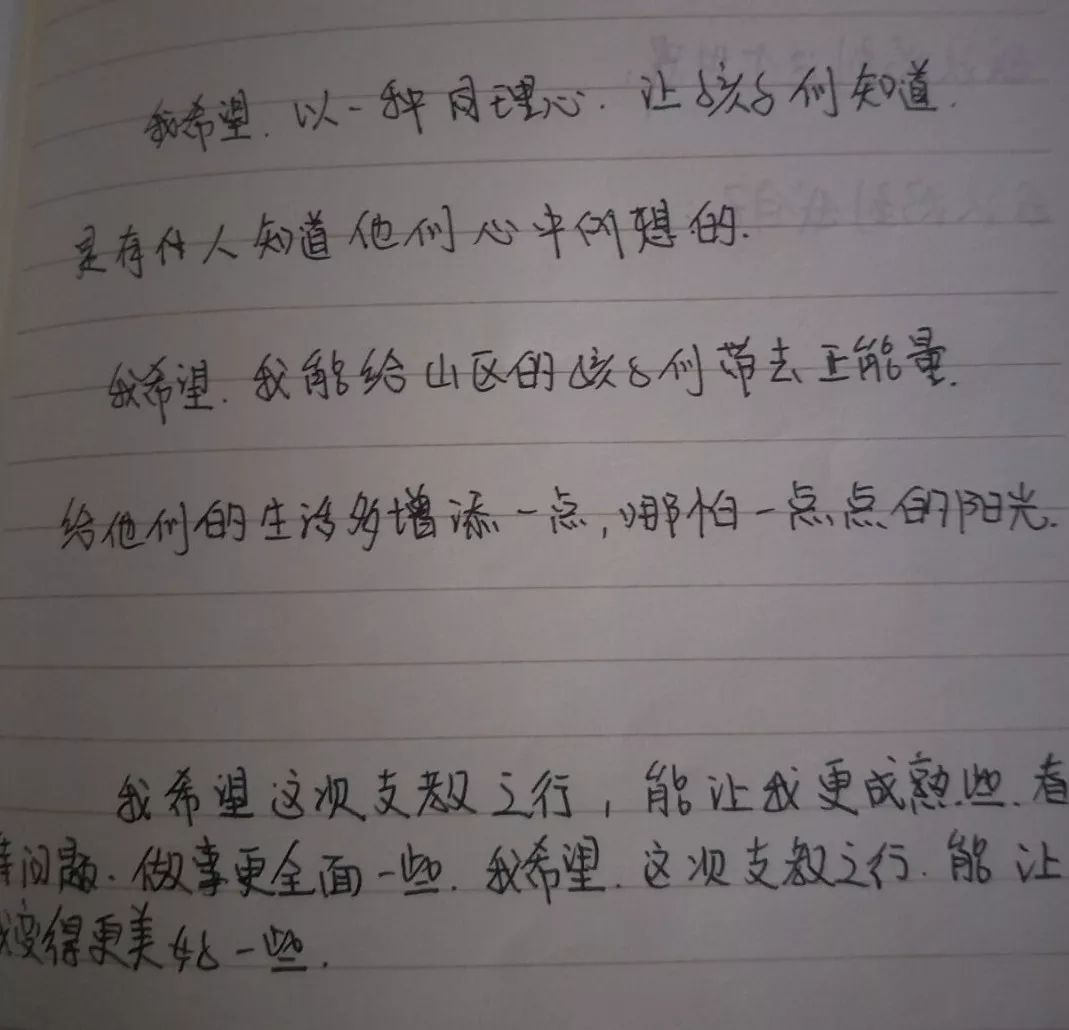 我希望.以一种同理心.让孩子们知道.
是有什人知道他们心中所想的.
我希望.我能给山区的孩子们带去正能量.
给他们的生活多增添一点,哪怕一点点的阳光.
我希望这次支教之行,能让我更成熟些.看
待问题.做事更全面一些.我希望.这次支教之行.能让
我变得更美好一些.